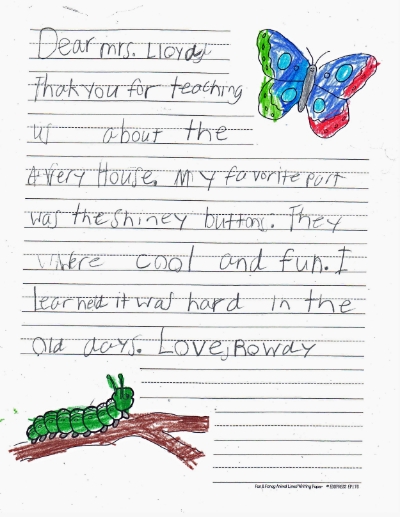 Dear mrs. Lloyd
Thak you for teaching
us about the
Avery House. My favorite part
was the shiney buttons. They
where cool and fun. I
learned it was hard in the
old days. Love, Rowdy
Fun & Fancy Animal Lined Writing Paper